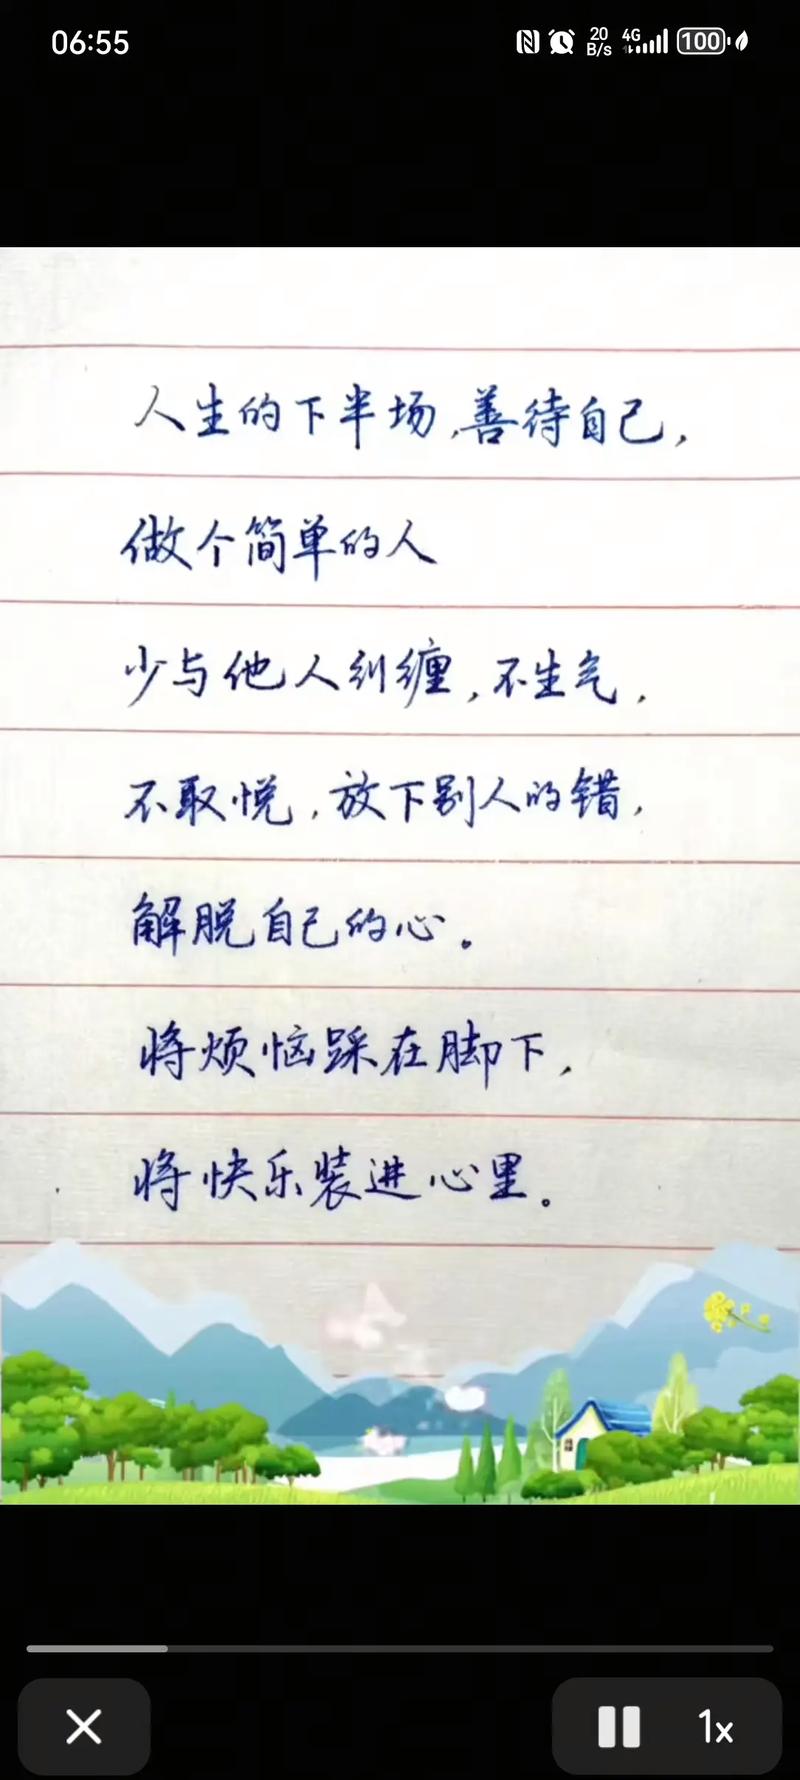 06:55
20 B/s 4G 100
人生的下半场,善待自己,
做个简单的人
少与他人纠缠,不生气,
不取悦,放下别人的错,
解脱自己的心。
将烦恼踩在脚下,
将快乐装进心里。
1x